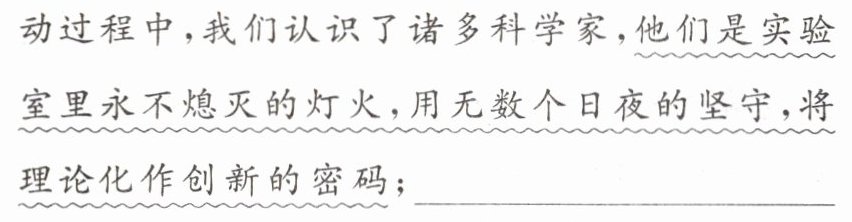 动过程中,我们认识了诸多科学家,他们是实验
室里永不熄灭的灯火,用无数个日夜的坚守,将
理论化作创新的密码;